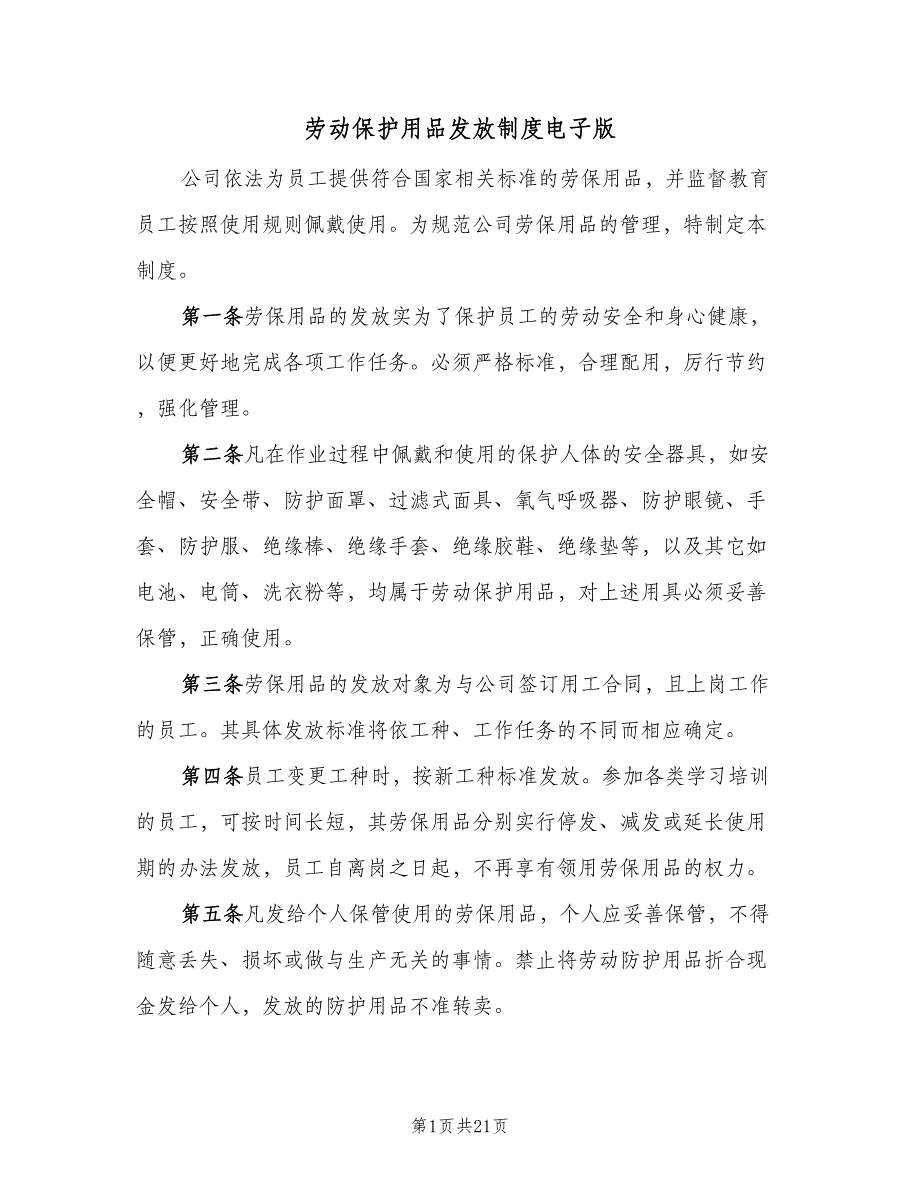 劳动保护用品发放制度电子版
公司依法为员工提供符合国家相关标准的劳保用品，并监督教育
员工按照使用规则佩戴使用。为规范公司劳保用品的管理，特制定本
制度。
第一条劳保用品的发放实为了保护员工的劳动安全和身心健康，
以便更好地完成各项工作任务。必须严格标准，合理配用，厉行节约
，强化管理。
第二条凡在作业过程中佩戴和使用的保护人体的安全器具，如安
全帽、安全带、防护面罩、过滤式面具、氧气呼吸器、防护眼镜、手
套、防护服、绝缘棒、绝缘手套、绝缘胶鞋、绝缘垫等，以及其它如
电池、电筒、洗衣粉等，均属于劳动保护用品，对上述用具必须妥善
保管，正确使用。
第三条劳保用品的发放对象为与公司签订用工合同，且上岗工作
的员工。其具体发放标准将依工种、工作任务的不同而相应确定。
第四条员工变更工种时，按新工种标准发放。参加各类学习培训
的员工，可按时间长短，其劳保用品分别实行停发、减发或延长使用
期的办法发放，员工自离岗之日起，不再享有领用劳保用品的权力。
第五条凡发给个人保管使用的劳保用品，个人应妥善保管，不得
随意丢失、损坏或做与生产无关的事情。禁止将劳动防护用品折合现
金发给个人，发放的防护用品不准转卖。
第1页共21页